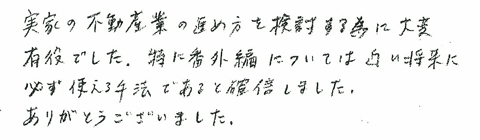 実家の不動産業の進め方を検討する為に大変
有役でした。特に番外編については近い将来に
必ず使える手法であると確信しました。
ありがとうございました。